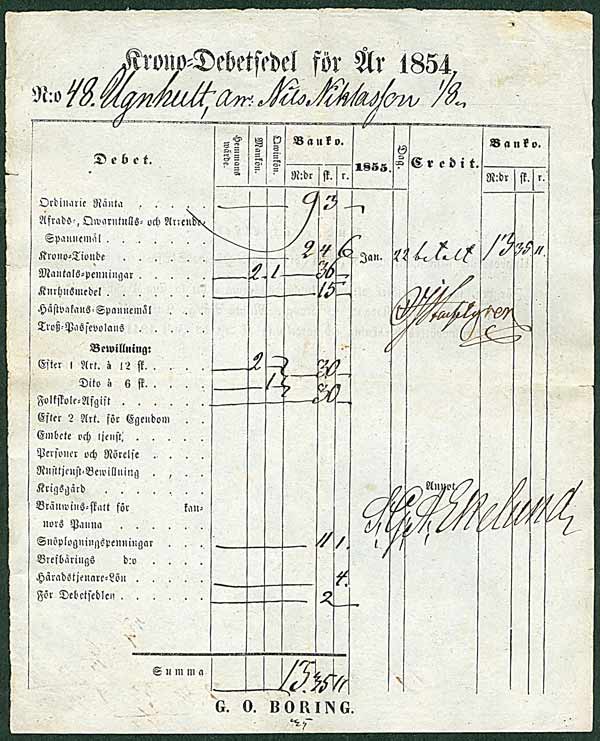 Krono-Debetsedel för År 1854,
N:o 48. Ugnhult, Nils Niklasson 1/8
Debet. Hemmans wärde. Mankön. Qwinkön. Banko. 1855. Dag. Credit. Banko.
R:dr sk. r. R:dr sk. r.
Ordinarie Ränta 9 3
Afrads-, Qwarntulls- och Arrende-
Spannemål
Krono-Tionde 2 4 6 Jan. 22 betalt 13 35 11
Mantals-penningar 2 1 36
Kurhusmedel 15
Håstvakans-Spannemål
Tross-Passevolans
Bewillning:
Efter 1 Art. à 12 sk. 2 30
Dito à 6 sk. 1 30
Folkskole-Afgift
Efter 2 Art. för Egendom
Embete och tjenst,
Personer och Rörelse
Rusttjenst-Bewillning
Krigsgärd
Annot.
Bränwins-skatt för kan-
nors Panna
S. G. A. Ekelund
Snöplogningspenningar 11 1
Brefbärings d:o
Häradstjenare-Lön 4
För Debetsedlen 2
Summa 13 35 11
G. O. BORING.